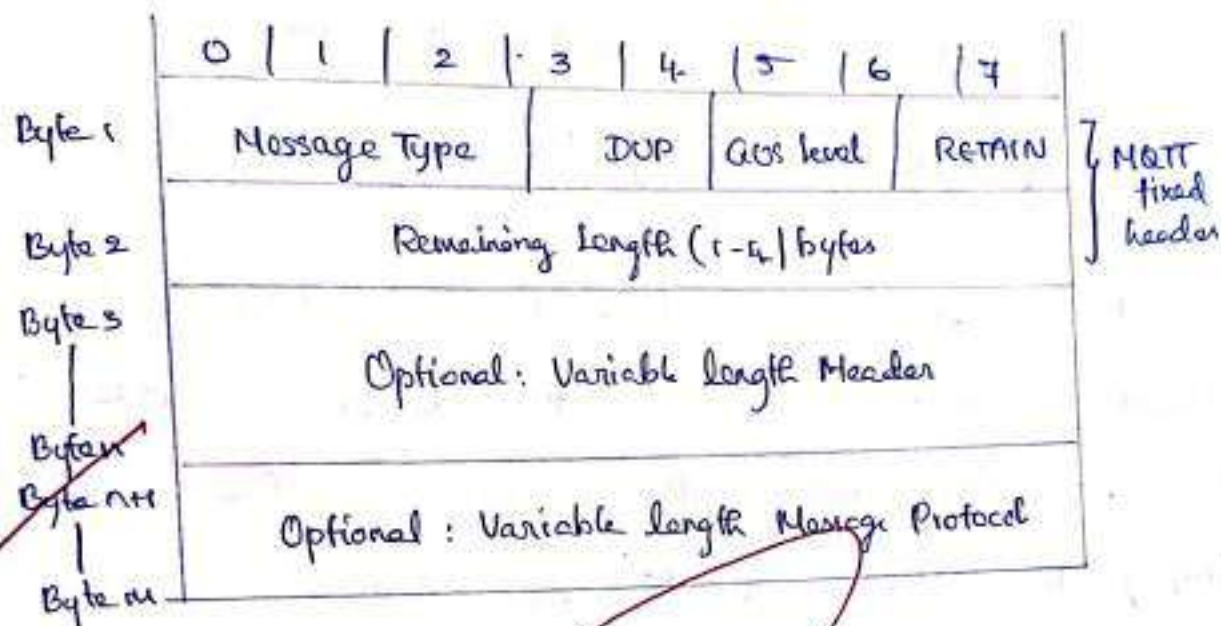 0 | 1 | 2 | 3 | 4 | 5 | 6 | 7
Byte 1 Message Type DUP QOS level RETAIN MQTT fixed header
Byte 2 Remaining Length (1-4) bytes
Byte 3
Optional: Variable length Header
Byte n
Byte n+1
Optional : Variable length Message Protocol
Byte m